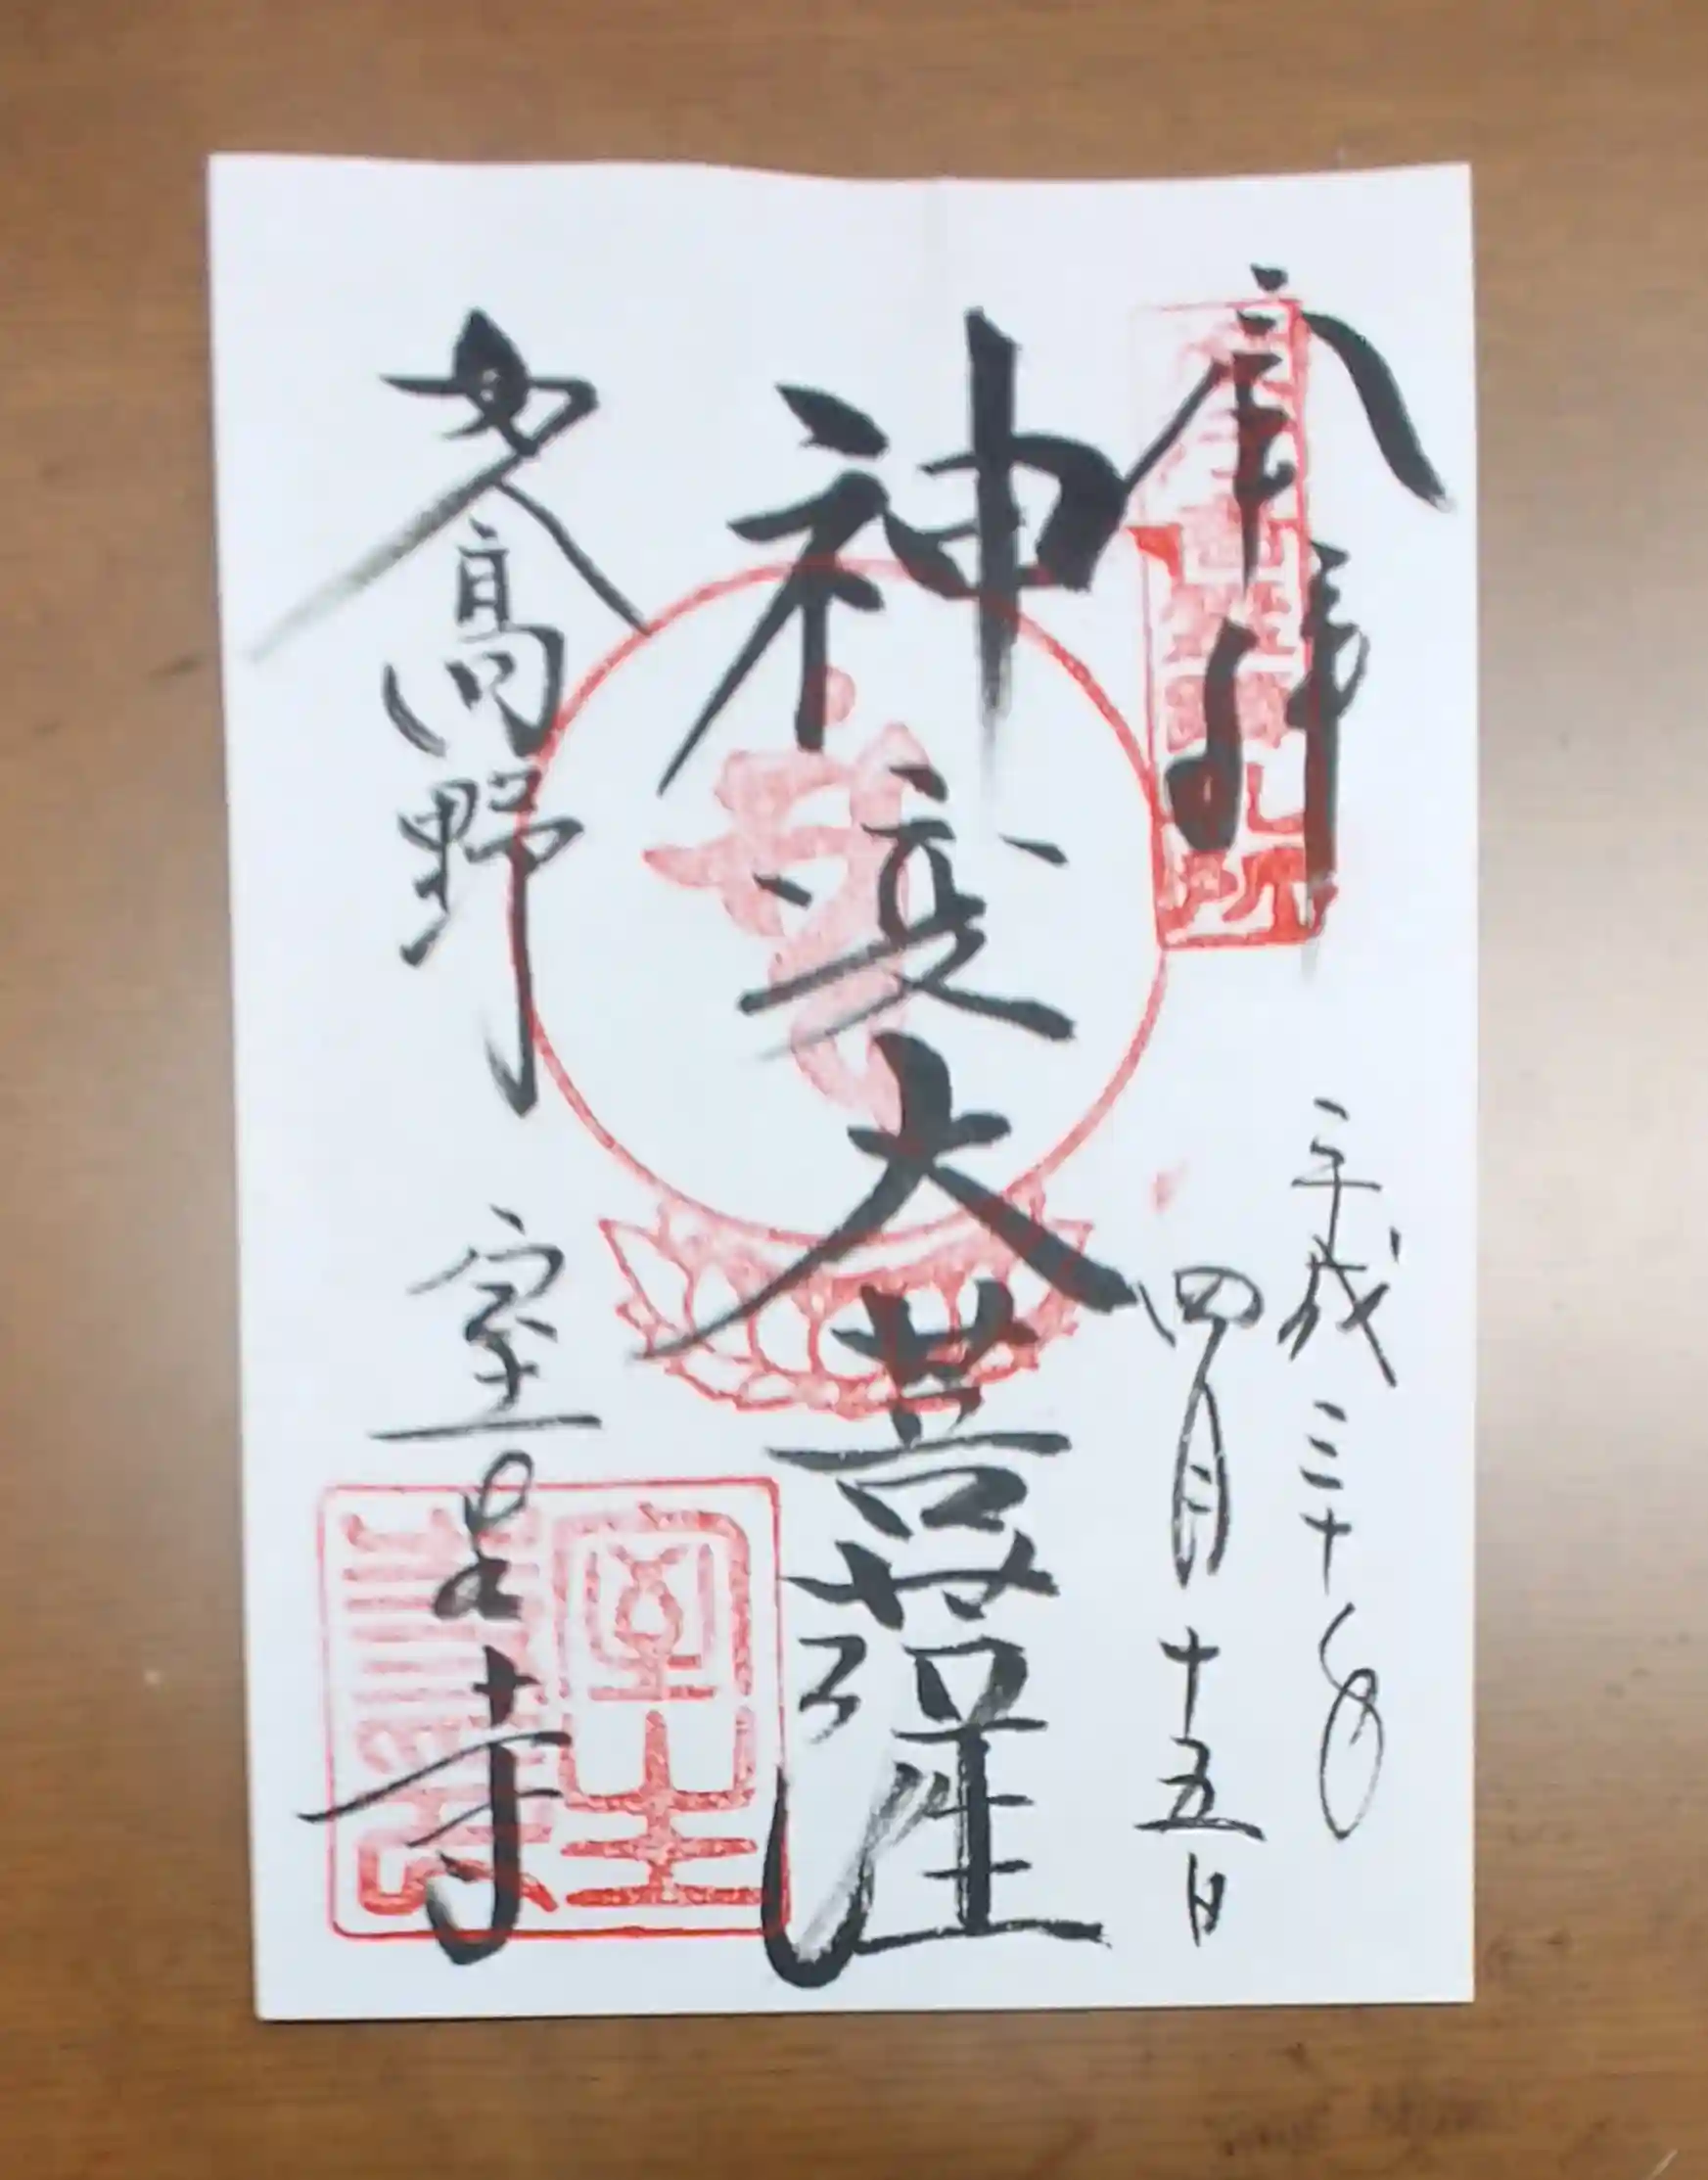 奉拝
平成三十年
四月十五日
神変大菩薩
女高野
室生寺